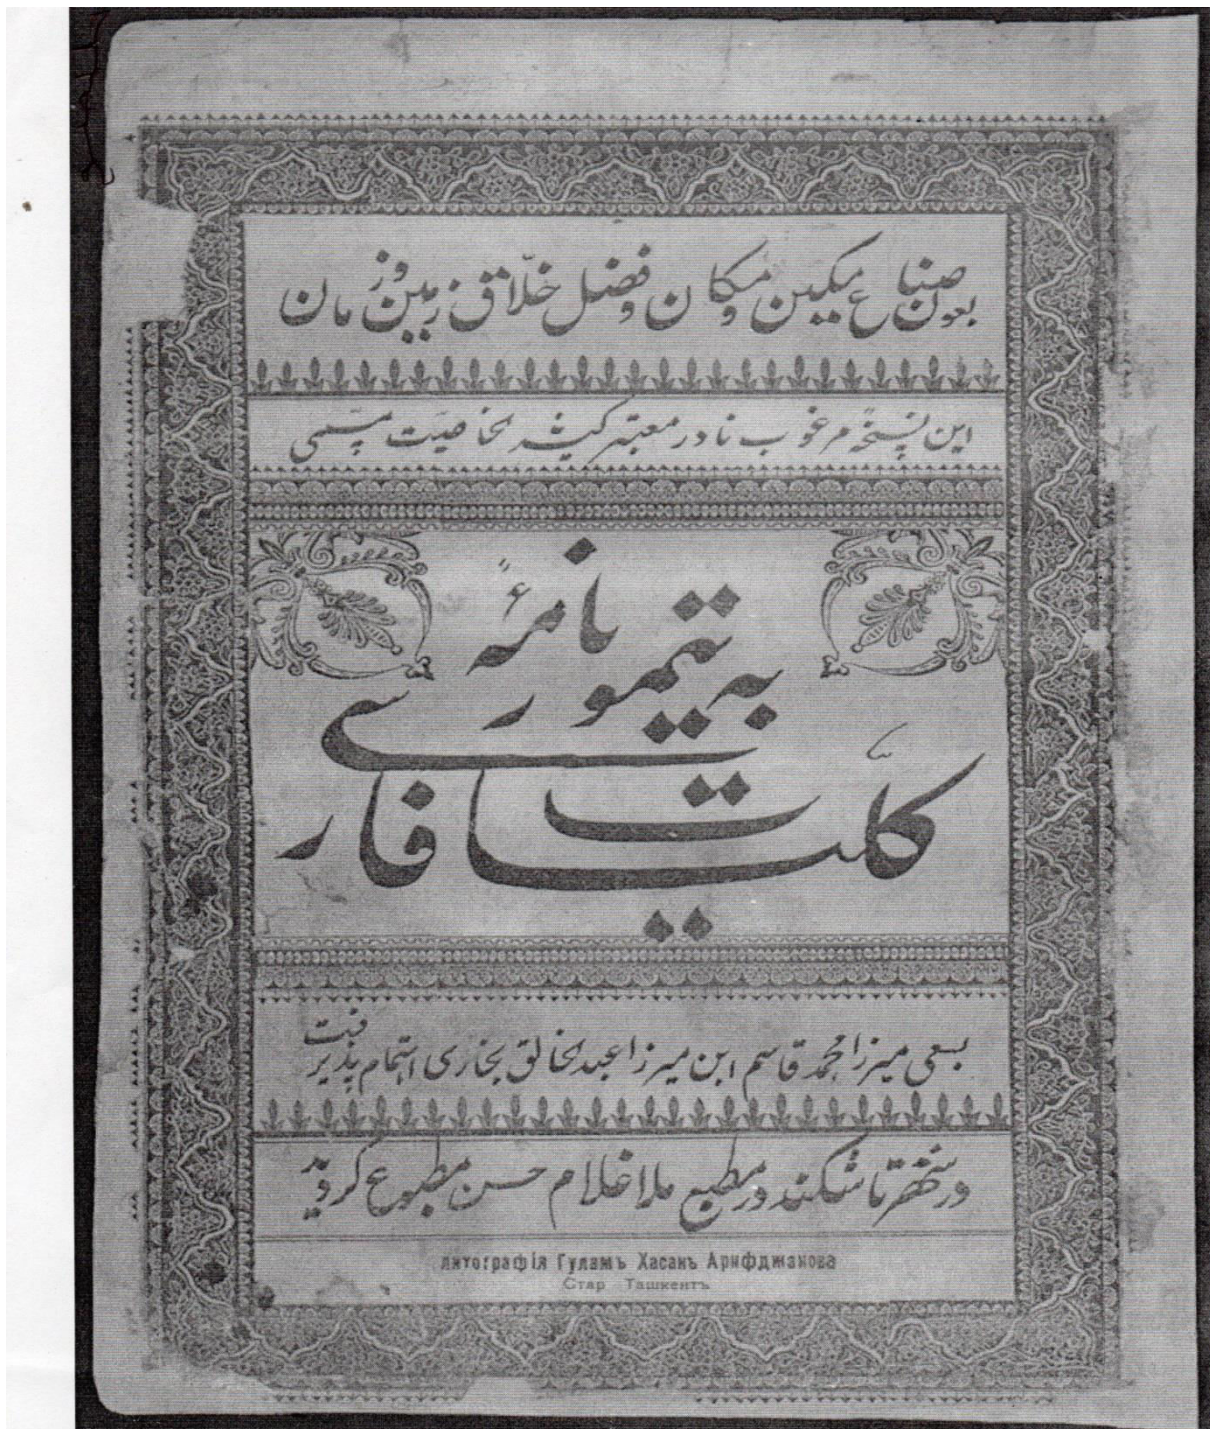 بعون صناع مکین و مکان و فضل خلاق زمین و زمان
این نسخهٔ مرغوب نادر معتبر کثیر الخاصیت مسمی
به تیمور نامهٔ
کلیات فارسی
بسعی میرزا محمد قاسم ابن میرزا عبدالخالق بخاری اهتمام پذیرفت
در شهر تاشکند در مطبع ملا غلام حسن مطبوع گردید
литографія Гуламъ Хасанъ Арифджанова
Стар Ташкентъ